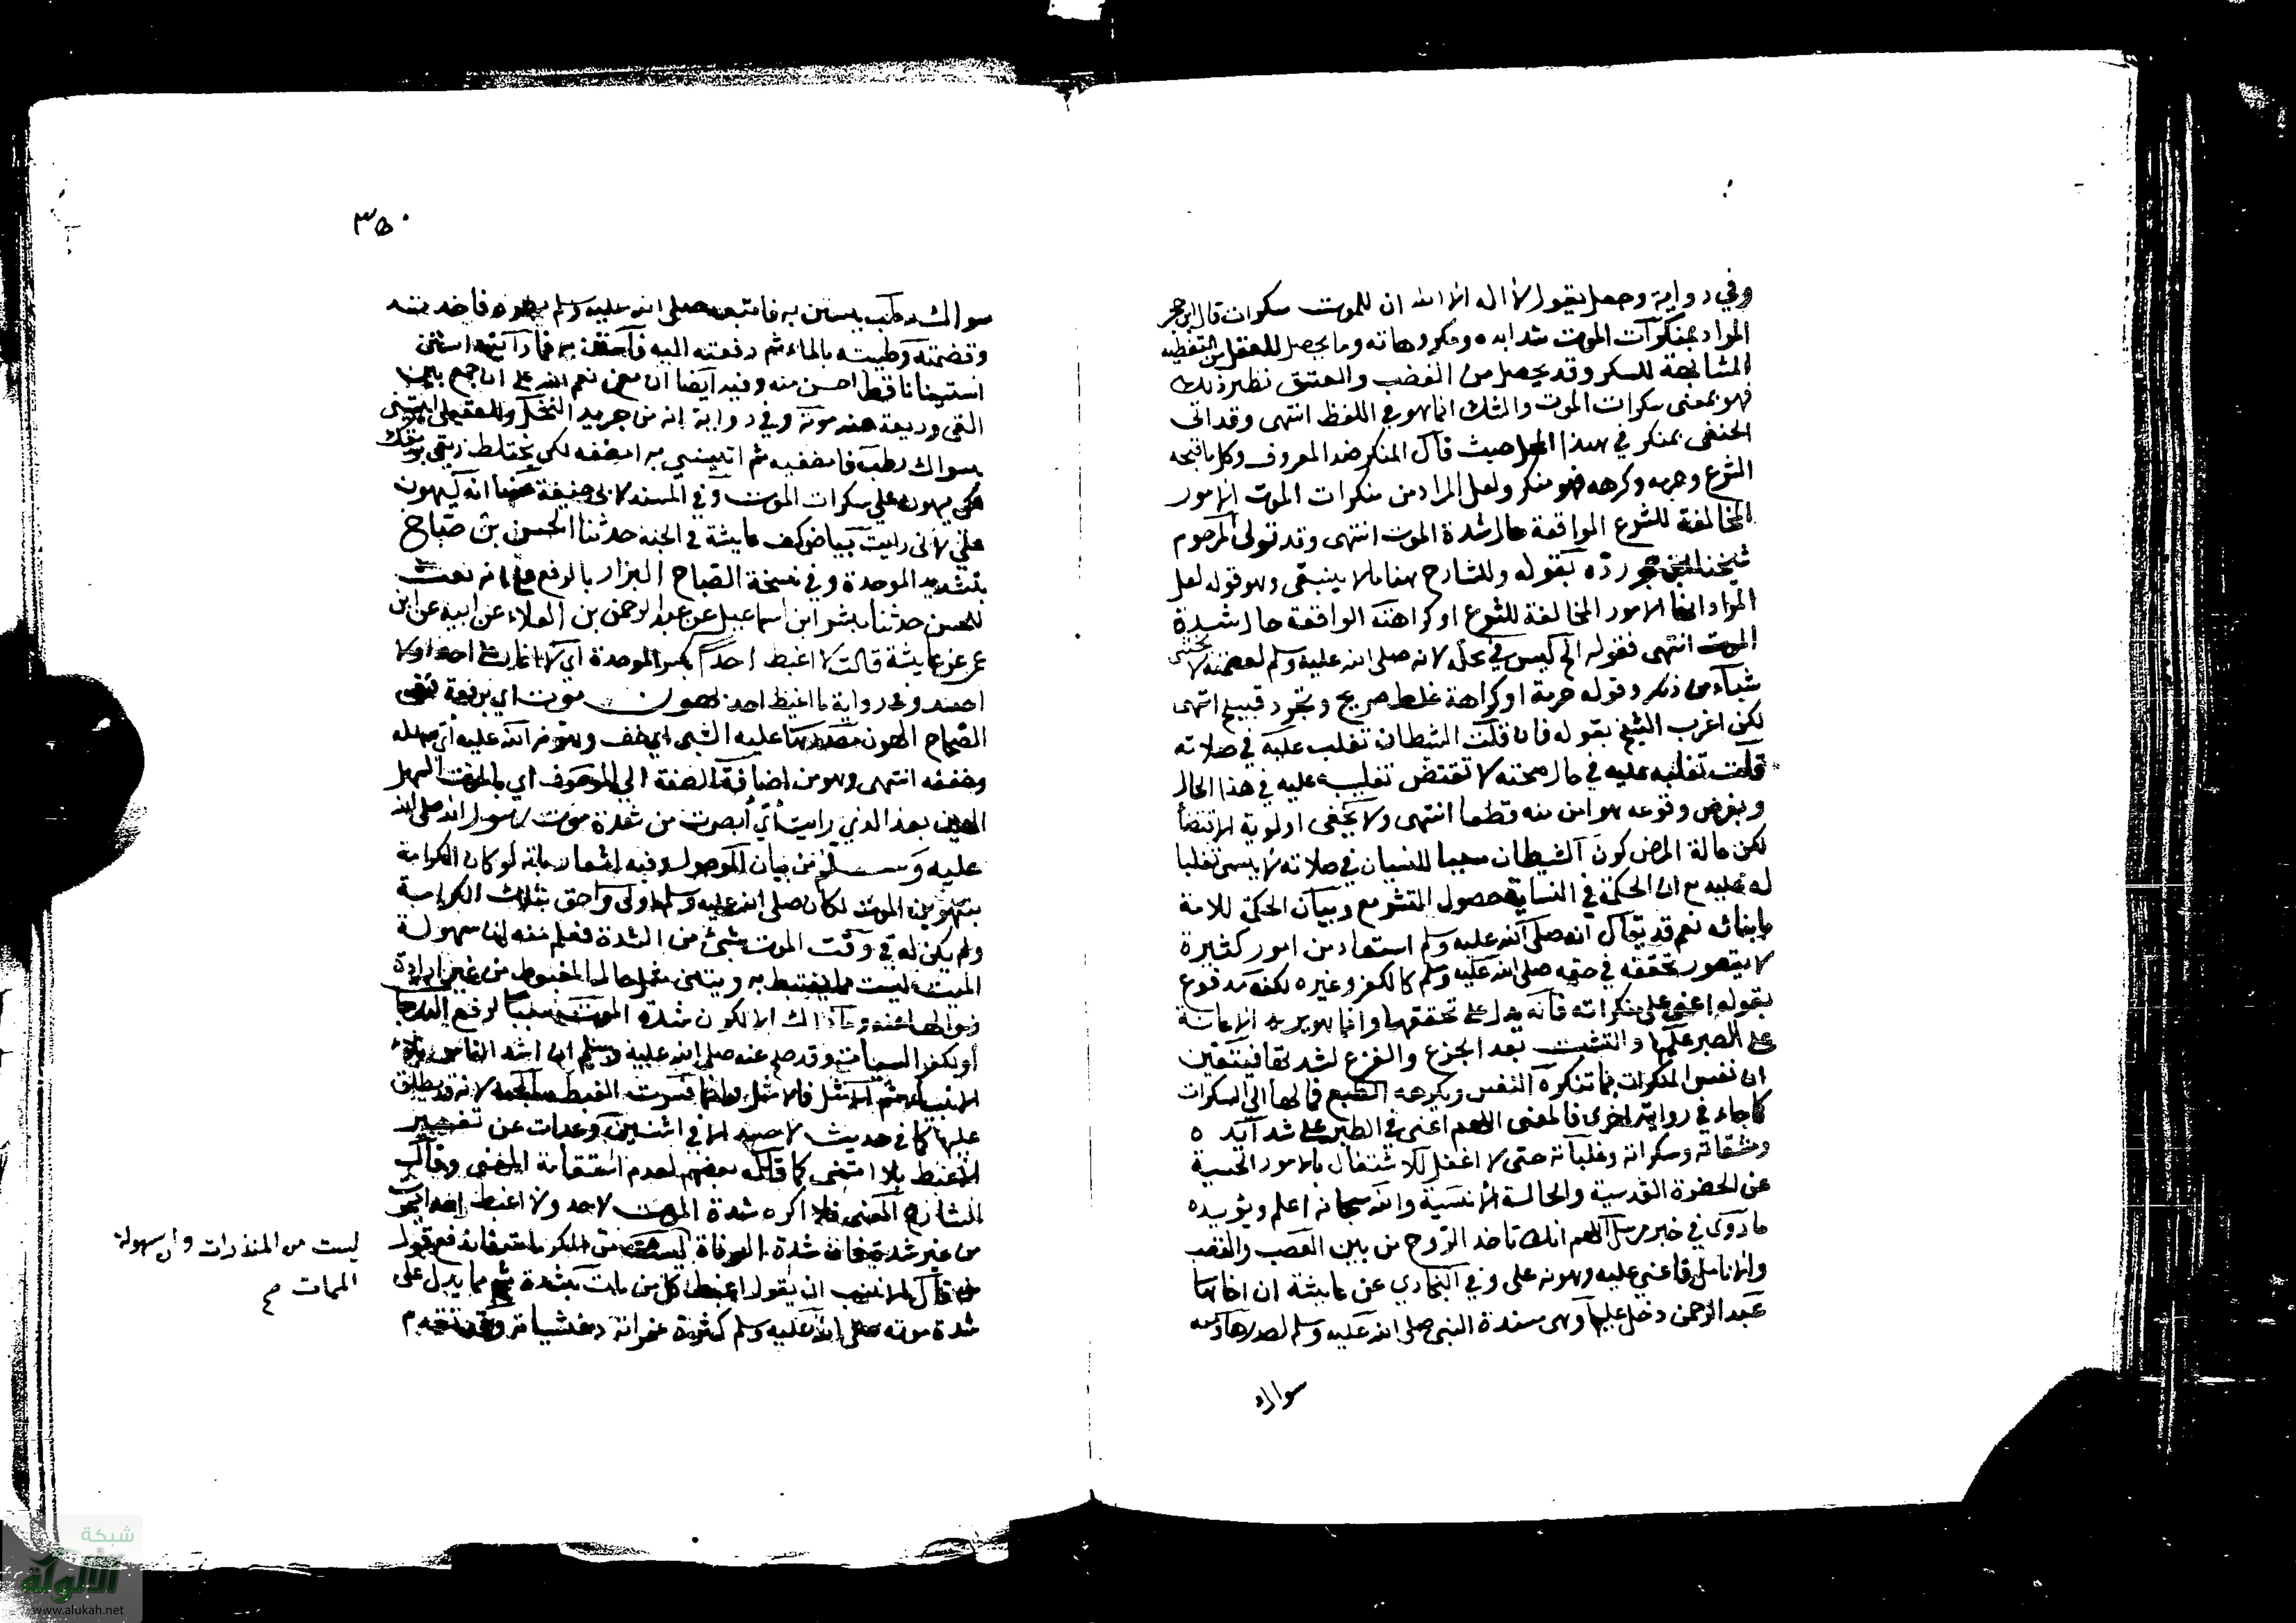 وفي رواية وجعل يقول لا اله الا الله ان للموت سكرات قال ابن حجر
المراد بمنكرات الموت شدايده ومكروهاته وما يحصل للعقل من التغطية
المشابهة للسكر وقد يحصل من الغضب والعشق نظير ذلك
فهو بمعنى سكرات الموت والشك انما هو في اللفظ انتهى وقد اتى
الحنفي بمنكر في هذا المحل حيث قال المنكر ضد المعروف وكل ما قبحه
الشرع وحرمه وكرهه فهو منكر ولعل المراد من منكرات الموت الامور
المخالفة للشرع الواقعة حال شدة الموت انتهى وقد تولى المرحوم
شيخنا ابن حجر رده بقوله وللشارح هنا ما لا ينبغي وهو قوله لعل
المراد انها الامور المخالفة للشرع او كراهته الواقعة حال شدة
الموت انتهى فقوله الخ ليس في محله لانه صلى الله عليه وسلم لعصمته لا يخشى
شياء من ذلك وقوله حرمة او كراهة غلط صريح وتجرد قبيح انتهى
لكن اغرب الشيخ بقوله فان قلت الشيطان تغلب عليه في صلاته
قلت تغلبه عليه في حال صحته لا تقتضي تغلبه عليه في هذا الحال
وبفرض وقوعه هو امن منه قطعا انتهى ولا يخفى اولوية الاقتضاء
لكن حالة المرض كون الشيطان سببا للنسيان في صلاته لا يسمى تغلبا
له عليه مع ان الحكمة في انسائه حصول التشريع وبيان الحكم للامة
بابنائه نعم قد يقال انه صلى الله عليه وسلم استعاذ من امور كثيرة
لا يتصور تحققه في حقه صلى الله عليه وسلم كالكفر وغيره لكنه مدفوع
بقوله اعني على منكراته فانه يدل على تحققها وانما يريد الاعانة
على الصبر عليها والتثبت بعد الجزع والفزع لشدتها فيتعين
ان نفس المنكرات بما تنكره النفس ويكرهه الطبع فمالها الى السكرات
كما جاء في رواية اخرى فالمعنى اللهم اعني في الصبر على شدايده
ومشقاته وسكراته وغلباته حتى لا اغفل للاشتغال بالامور الحسية
عن الحضرة القدسية والحالة الانسية والله سبحانه اعلم ويؤيده
ما روى في خبر مرسل اللهم انك تاخذ الروح من بين العصب والقصب
والانامل فاعني عليه وهونه على وفي البخاري عن عايشة ان اخاها
عبد الرحمن دخل عليها وهي مسندة النبي صلى الله عليه وسلم لصدرها ومعه
سواك
٣٥٠
سواك رطب يستن به فاتبعه صلى الله عليه وسلم بصره فاخذته
وقضمته وطيبته بالماء ثم دفعته اليه فاستن به فما رايته استن
استنانا قط احسن منه وفيه ايضا ان من نعم الله على ان جمع بين
ريقي وريقه عند موته وفي رواية انه من جريد النخل وللعقيلي ايتيني
بسواك رطب فامضغيه ثم ايتيني به امضغه لكي يختلط ريقي بريقك
لكي يهون علي سكرات الموت وفي المسند لابي حنيفة عنها انه ليهون
علي لاني رايت بياض كف عايشة في الجنة حدثنا الحسن بن صباح
بتشديد الموحدة وفي نسخة الصباح البزار بالرفع على انه نعت
للحسن حدثنا مبشر ابن اسماعيل عن عبد الرحمن بن العلاء عن ابيه عن ابن
عمر عن عايشة قالت لا اغبط احدا بكسر الموحدة اي لا اغار على احد ولا
احسد وفي رواية ما اغبط احدا بهون موت اي برفعه ففي
الصحاح الهون مصدر هان عليه الشي اي خف وهونه الله عليه اي سهله
وخففه انتهى وهو من اضافة الصفة الى الموصوف اي بالموت السهل
الهين بعد الذي رايت اي ابصرت من شدة موت رسول الله صلى الله
عليه وسلم من بيان الموصول وفيه اشعار بانه لو كان الكرامة
بتهوين الموت لكان صلى الله عليه وسلم اولى واحق بتلك الكرامة
ولم يكن له في وقت الموت شئ من الشدة فعلم منه ان سهولة
الموت ليست مما يغتبط به ويتمنى مثل حال المغبوط من غير ارادة
زوالها عنه وما ذاك الا لكون شدة الموت سببا لرفع الدرجات
او لكفر السيات وقد صح عنه صلى الله عليه وسلم ان اشد الناس بلاء
الانبياء ثم الامثل فالامثل وانما فسرت الغبط بالحسد لانه قد يطلق
عليها كما في حديث لا حسد الا في اثنين وعدلت عن تفسير
الاغبط بلا اتمنى كما قاله بعضهم لعدم استقامة المعنى وقال
الشارح المعنى فلا اكره شدة الموت لاحد ولا اغبط احدا يموت
من غير شدة فان شدة الوفاة ليست من المكرمات فاندفع قول
من قال الانسب ان يقول اغبط كل من مات بشدة ثم مما يدل على
شدة موته صلى الله عليه وسلم كثرة غمراته وغشياته وقد تقدم
ليست من المنذرات وان سهولة
الممات صح
شبكة
الألوكة
www.alukah.net